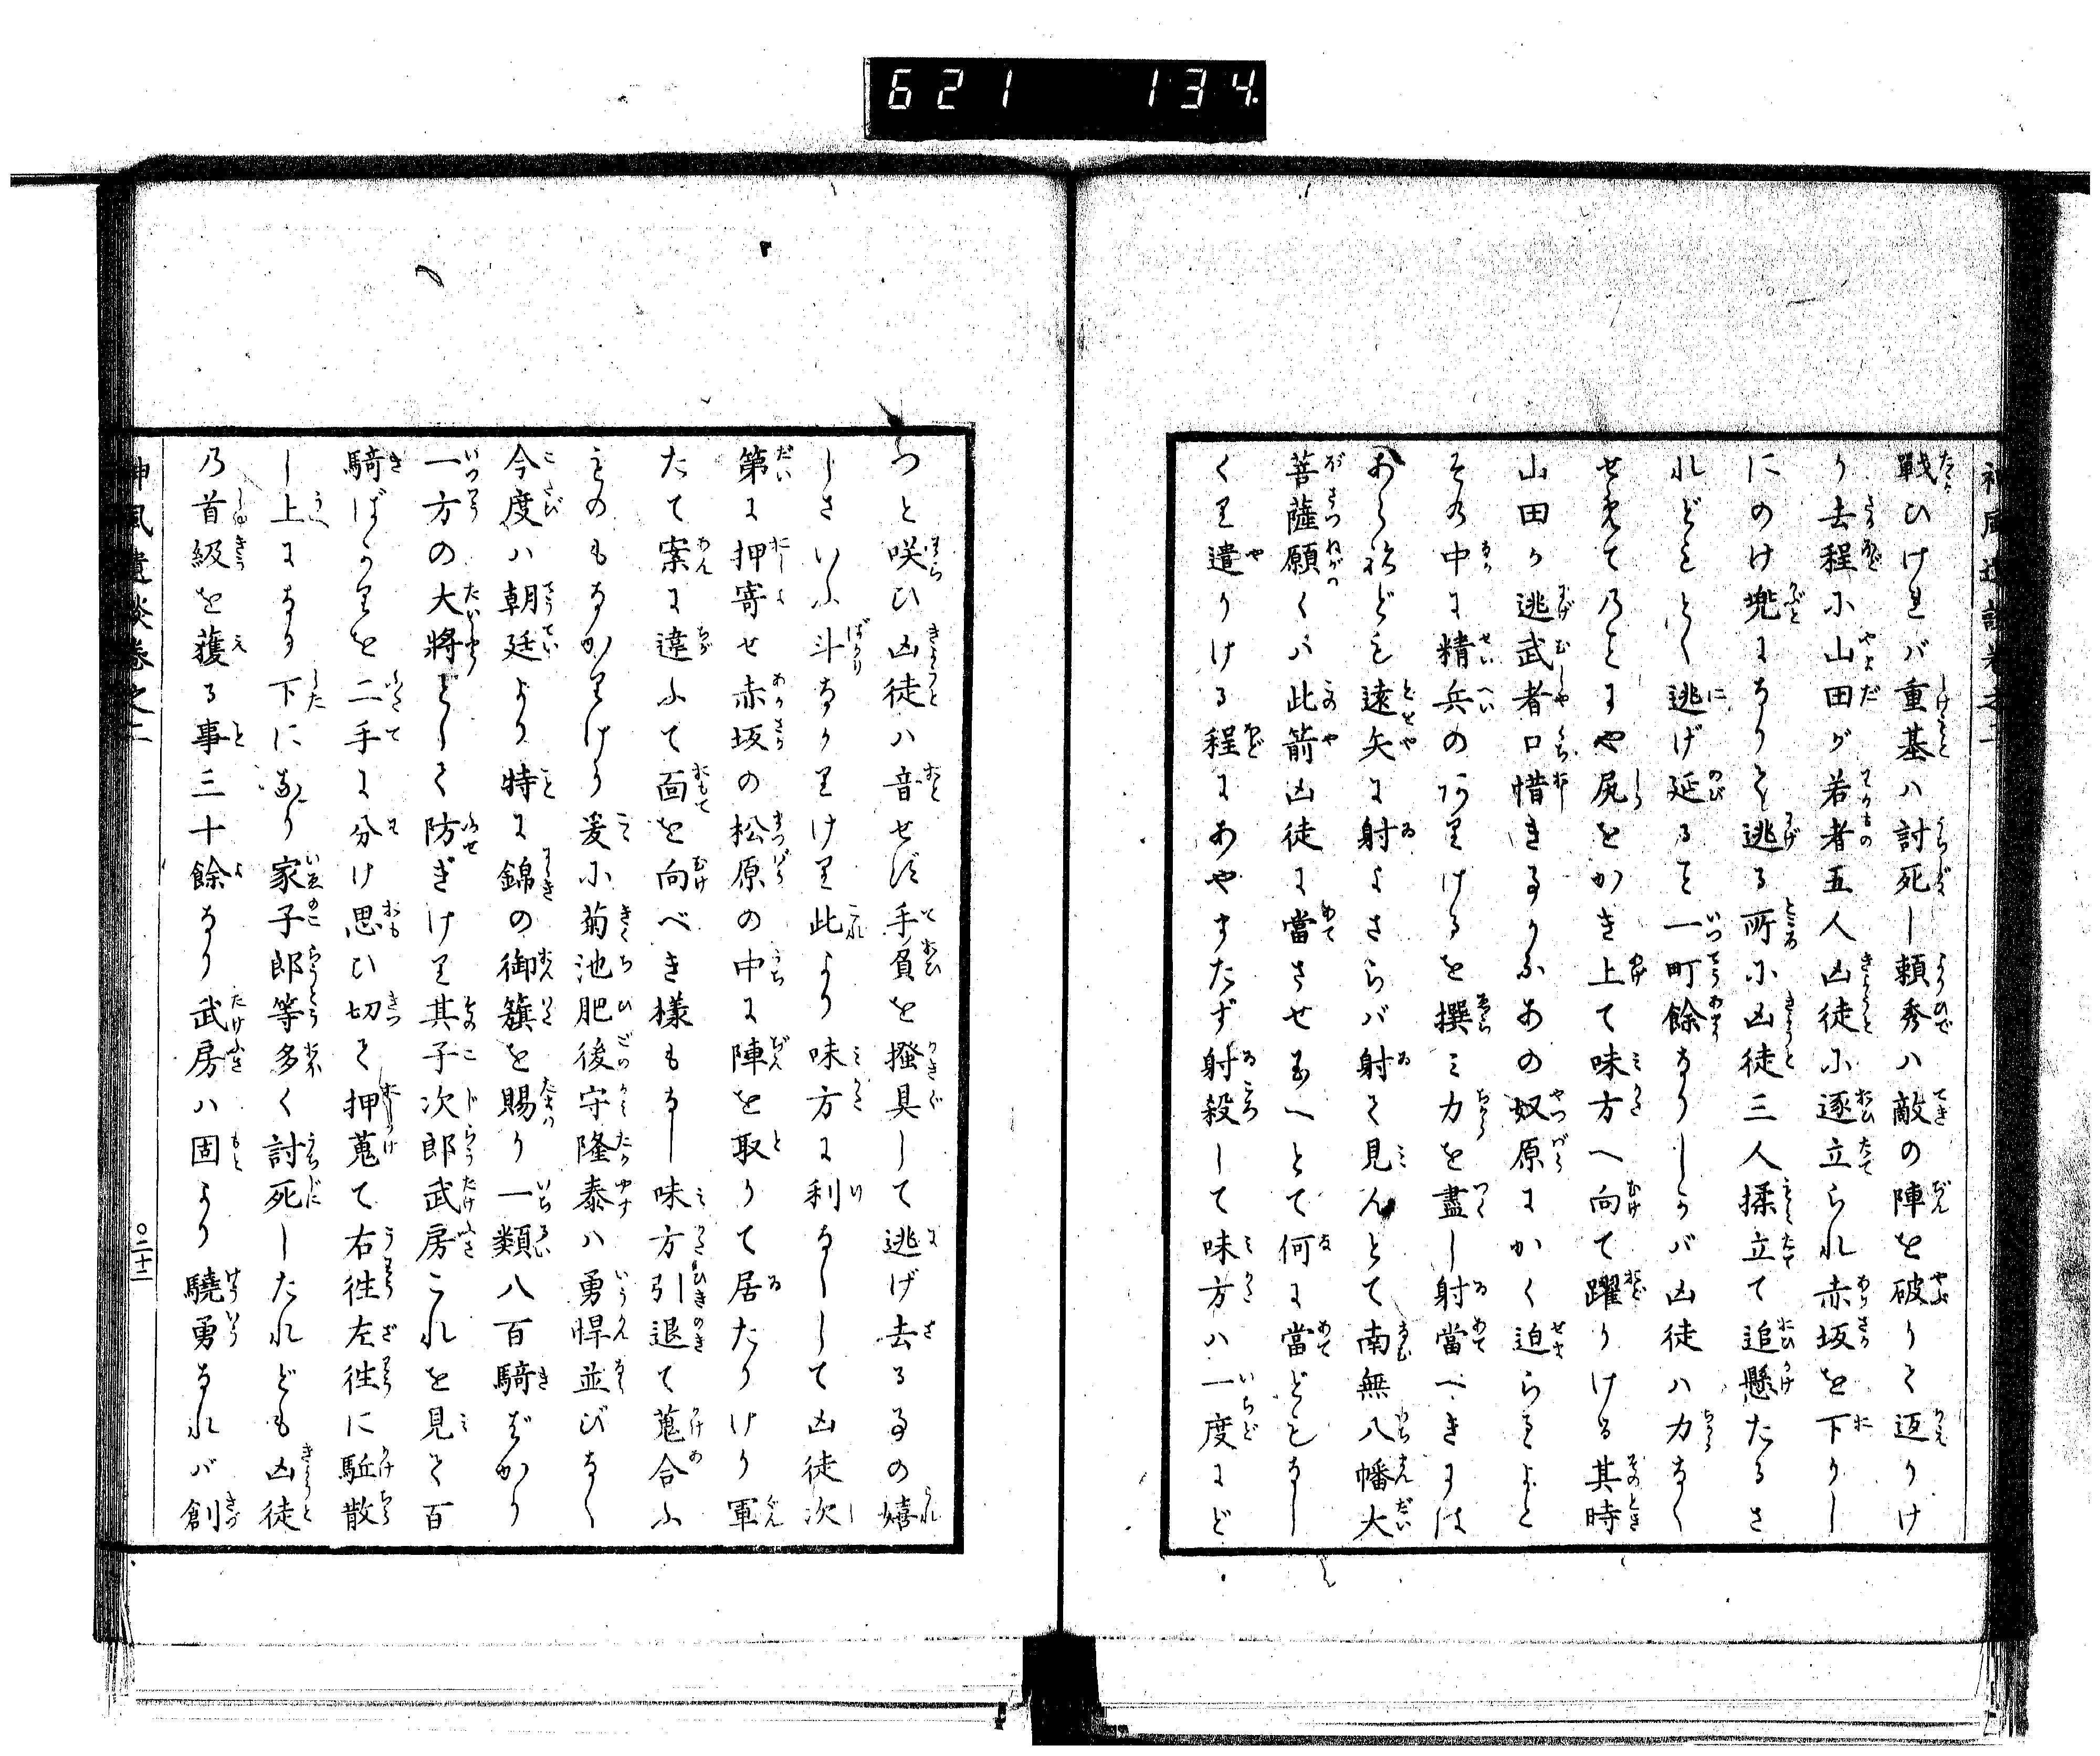 621 134.
神風遺談卷之二
戰ひけれバ重基ハ討死し頼秀ハ敵の陣を破りて返りけ
り去程に山田が若者五人凶徒に逐立られ赤坂を下りし
にのけ兠になりて逃る所に凶徒三人揉立て追懸たるさ
れどもとく逃げ延ること一町餘なりしかバ凶徒ハ力なく
せめてのとにや尻をかき上て味方へ向て躍りける其時
山田か逃武者口惜きことかなあの奴原にかく迫らるよと
その中に精兵のありけるを撰ミ力を盡し射當べきには
あらねども遠矢に射よさらバ射て見んとて南無八幡大
菩薩願くハ此箭凶徒に當させ玉へとて何に當どもなし
くり遣りける程にあやまたず射殺して味方ハ一度にど
つと咲ひ凶徒ハ音せず手負を撥具して逃げ去ることの嬉
しさいふ斗なかりけり此より味方に利なしして凶徒次
第に押寄せ赤坂の松原の中に陣を取りて居たりけり軍
たて案に違ふて面を向べき様もなし味方引退て蒐合ふ
ものもなかりけり爰に菊池肥後守隆泰ハ勇悍並びなく
今度ハ朝廷より特に錦の御籏を賜り一類八百騎ばかり
一方の大將として防ぎけり其子次郎武房これを見て百
騎ばかりを二手に分け思ひ切て押蒐て右徃左徃に駈散
し上になり下になり家子郎等多く討死したれども凶徒
の首級を獲る事三十餘なり武房ハ固より驍勇なれバ創
神風遺談卷之二
〇二十二